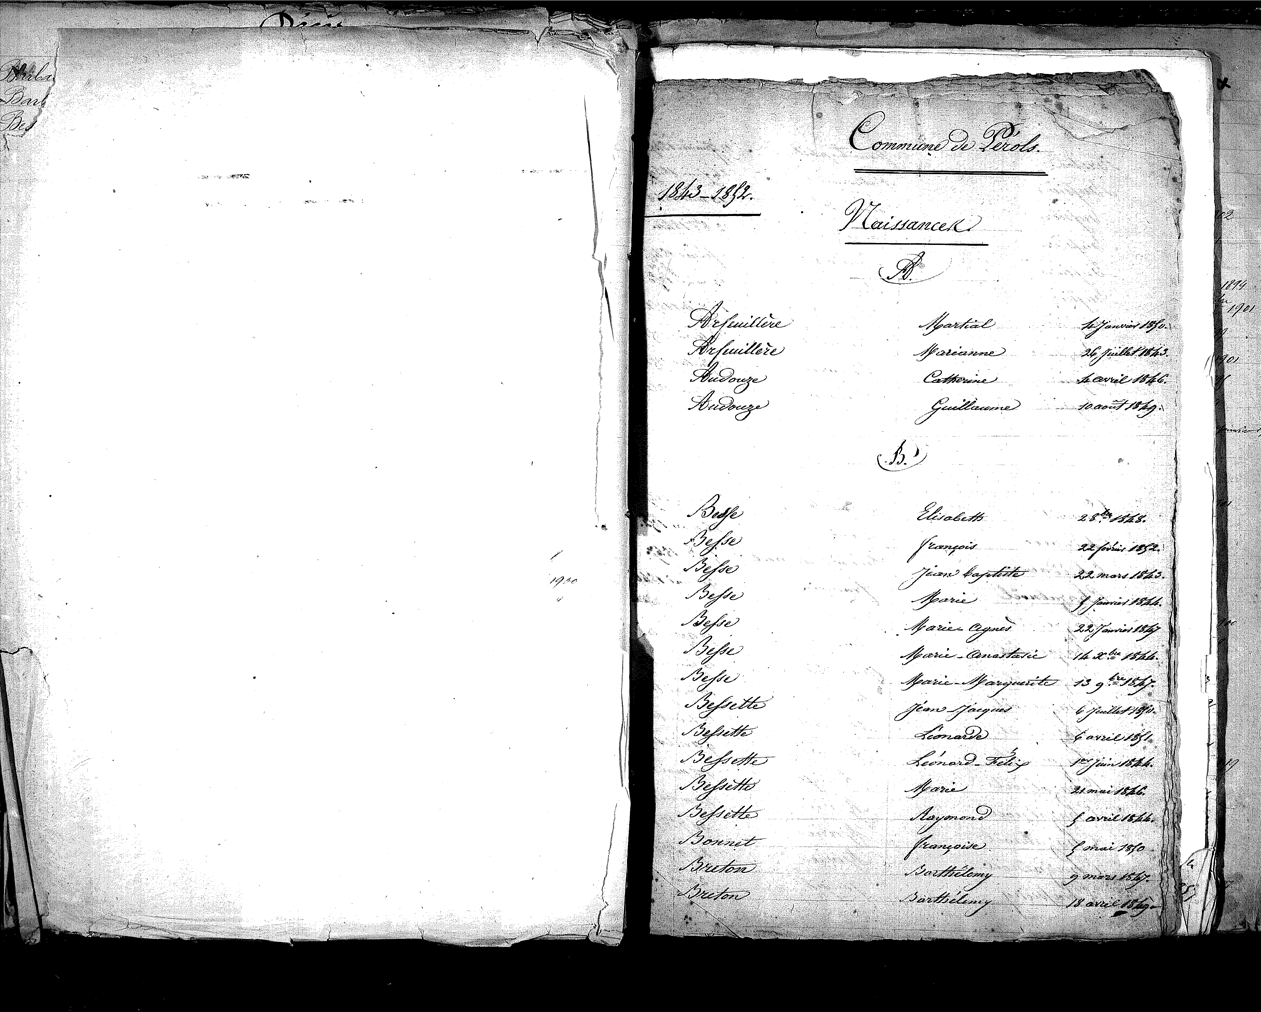 Commune de Pérols.
1843-1852.
Naissances.
A.
Arfeuillère Martial 4 Janvier 1850.
Arfeuillère Marianne 26 Juillet 1843.
Audouze Catherine 4 avril 1846.
Audouze Guillaume 10 août 1849.
B.
Besse Elisabeth 1848.
Besse françois 22 février 1852.
Besse Jean Baptiste 22 mars 1843.
Besse Marie 5 Janvier 1844.
Besse Marie-Agnès 22 Janvier 1847
Besse Marie-Anastasie 14 Xbre 1844.
Besse Marie-Marguerite 13 9bre 1847.
Bessette Jean-Jacques 6 Juillet 1850.
Bessette Léonarde 6 avril 1851.
Bessette Léonard-Félix 1er Juin 1844.
Bessette Marie 21 mai 1846.
Bessette Raymond 5 avril 1844.
Bonnet françoise 5 mai 1850
Breton Barthélemy 9 mars 1847.
Breton Barthélemy 18 avril 1849.